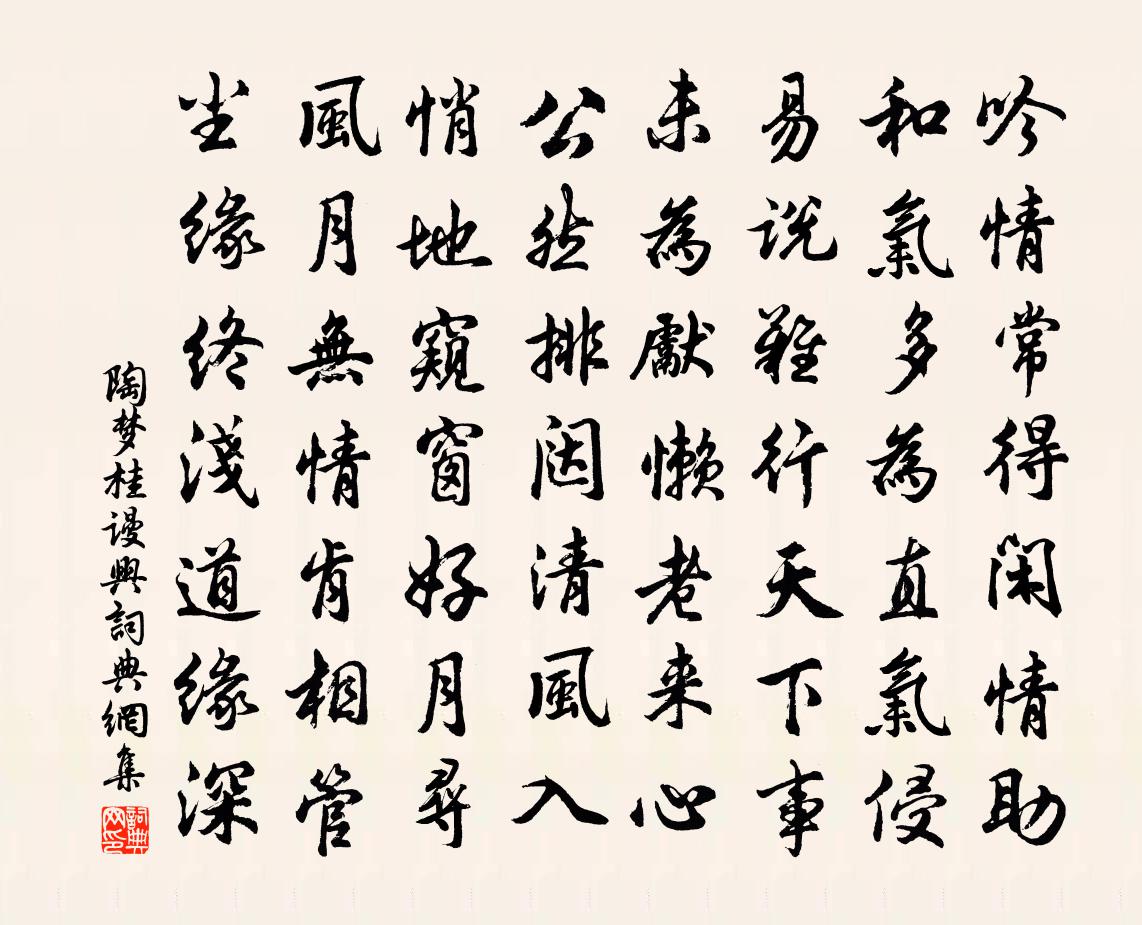 吟情常得閑情助
和氣多為直氣侵
易說難行天下事
未為獻懶老来心
公然排闼清風入
悄地窺窗好月尋
風月無情肯相管
尘緣终淺道緣深
陶梦桂谩興詞典網集
詞典网印